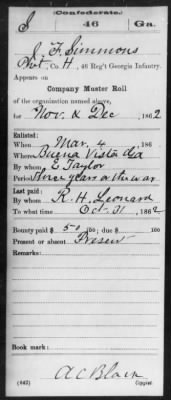 (Confederate.)
S 46 Ga.
J. F. Simmons
Pvt, Co. H, 46 Reg't Georgia Infantry.
Appears on
Company Muster Roll
of the organization named above,
for Nov. & Dec, 1862
Enlisted:
When Mar. 4, 186
Where Buena Vista Ga
By whom E Taylor
Period three years or the war
Last paid:
By whom R. H. Leonard
To what time Oct. 31, 1862
Bounty paid $ 50/100; due $ /100
Present or absent Present
Remarks:
Book mark:
A C Blain
(642) Copyist.